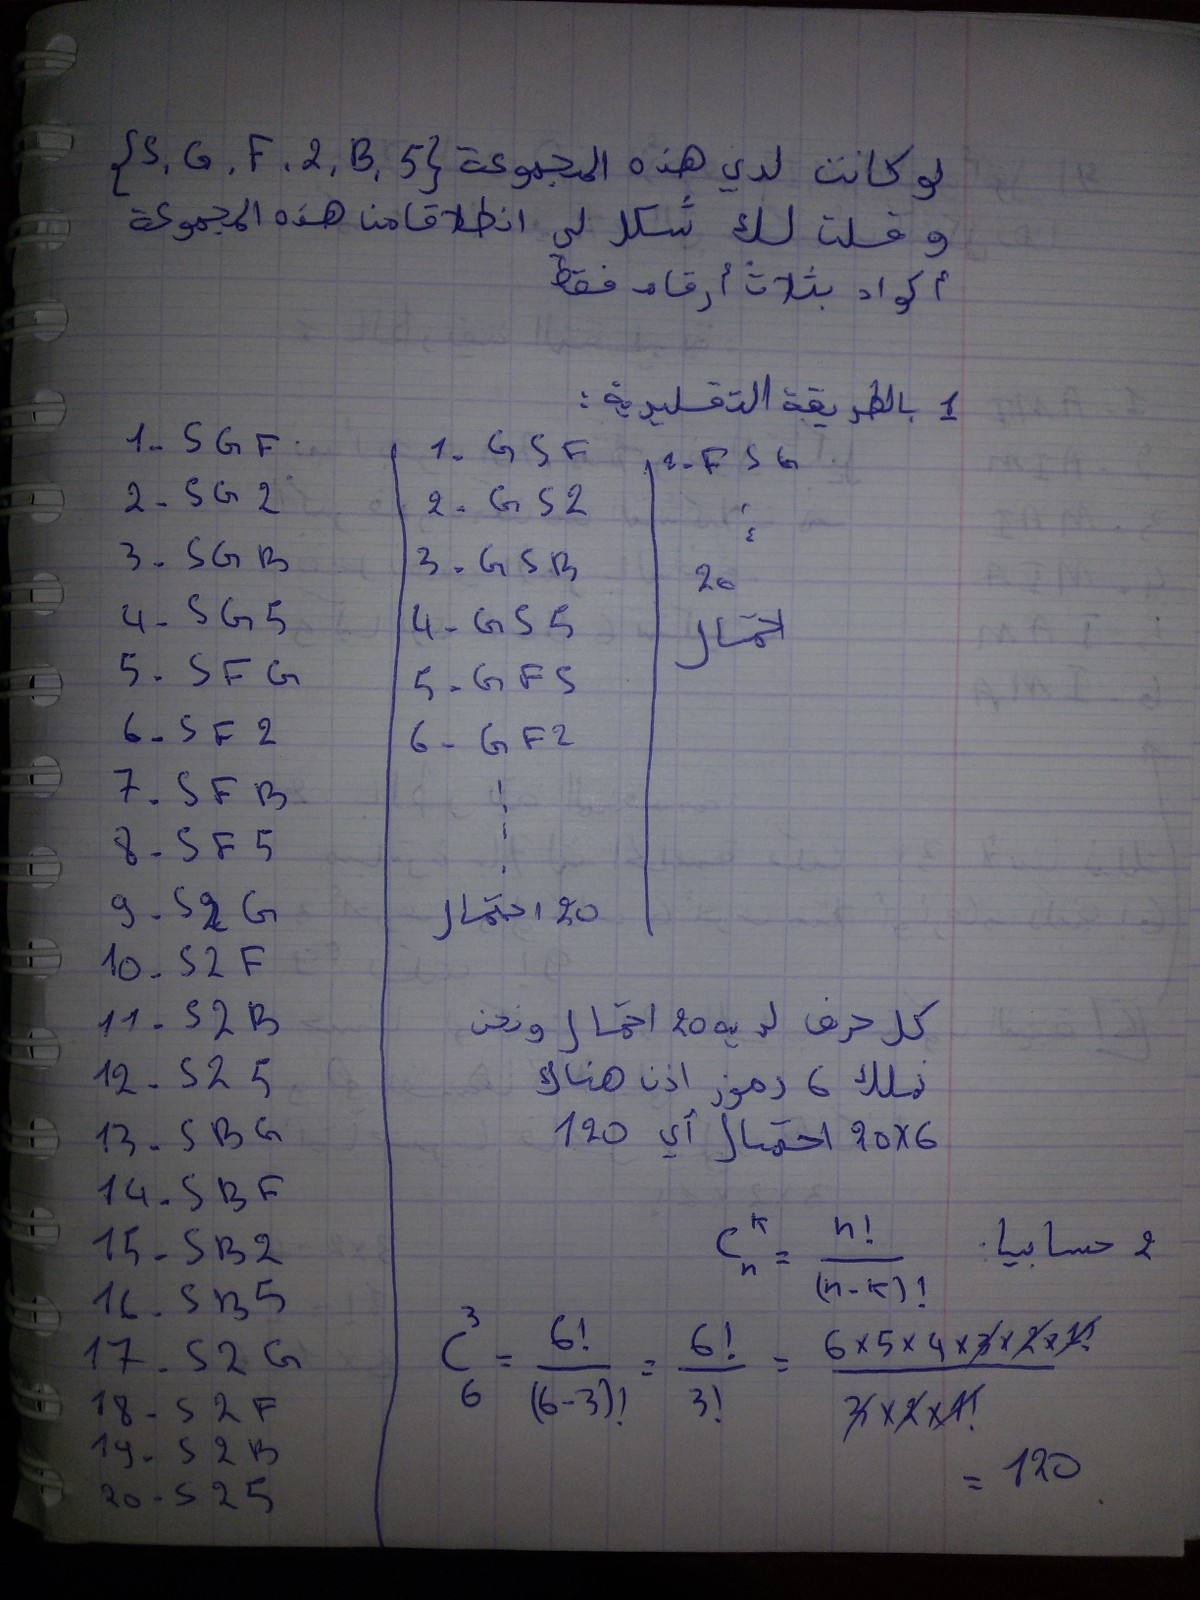 لو كانت لدي هذه المجموعة {S, G, F, 2, B, 5}
و قلت لك شكل لي انطلاقا من هذه المجموعة
أكواد بثلاث أرقام فقط
1 بالطريقة التقليدية :
1- SGF
2- SG2
3- SGB
4- SG5
5- SFG
6- SF2
7- SFB
8- SF5
9- S2G
10- S2F
11- S2B
12- S25
13- SBG
14- SBF
15- SB2
16- SB5
17- S2G
18- S2F
19- S2B
20- S25
1- GSF
2- GS2
3- GSB
4- GS5
5- GFS
6- GF2
20 احتمال
1- FSG
20
احتمال
كل حرف لديه 20 احتمال ونحن
نملك 6 رموز اذن هناك
20x6 احتمال أي 120
2 حسابيا: C_n^k = n! / (n-k)!
C_6^3 = 6! / (6-3)! = 6! / 3! = 6x5x4x3x2x1! / 3x2x1!
= 120